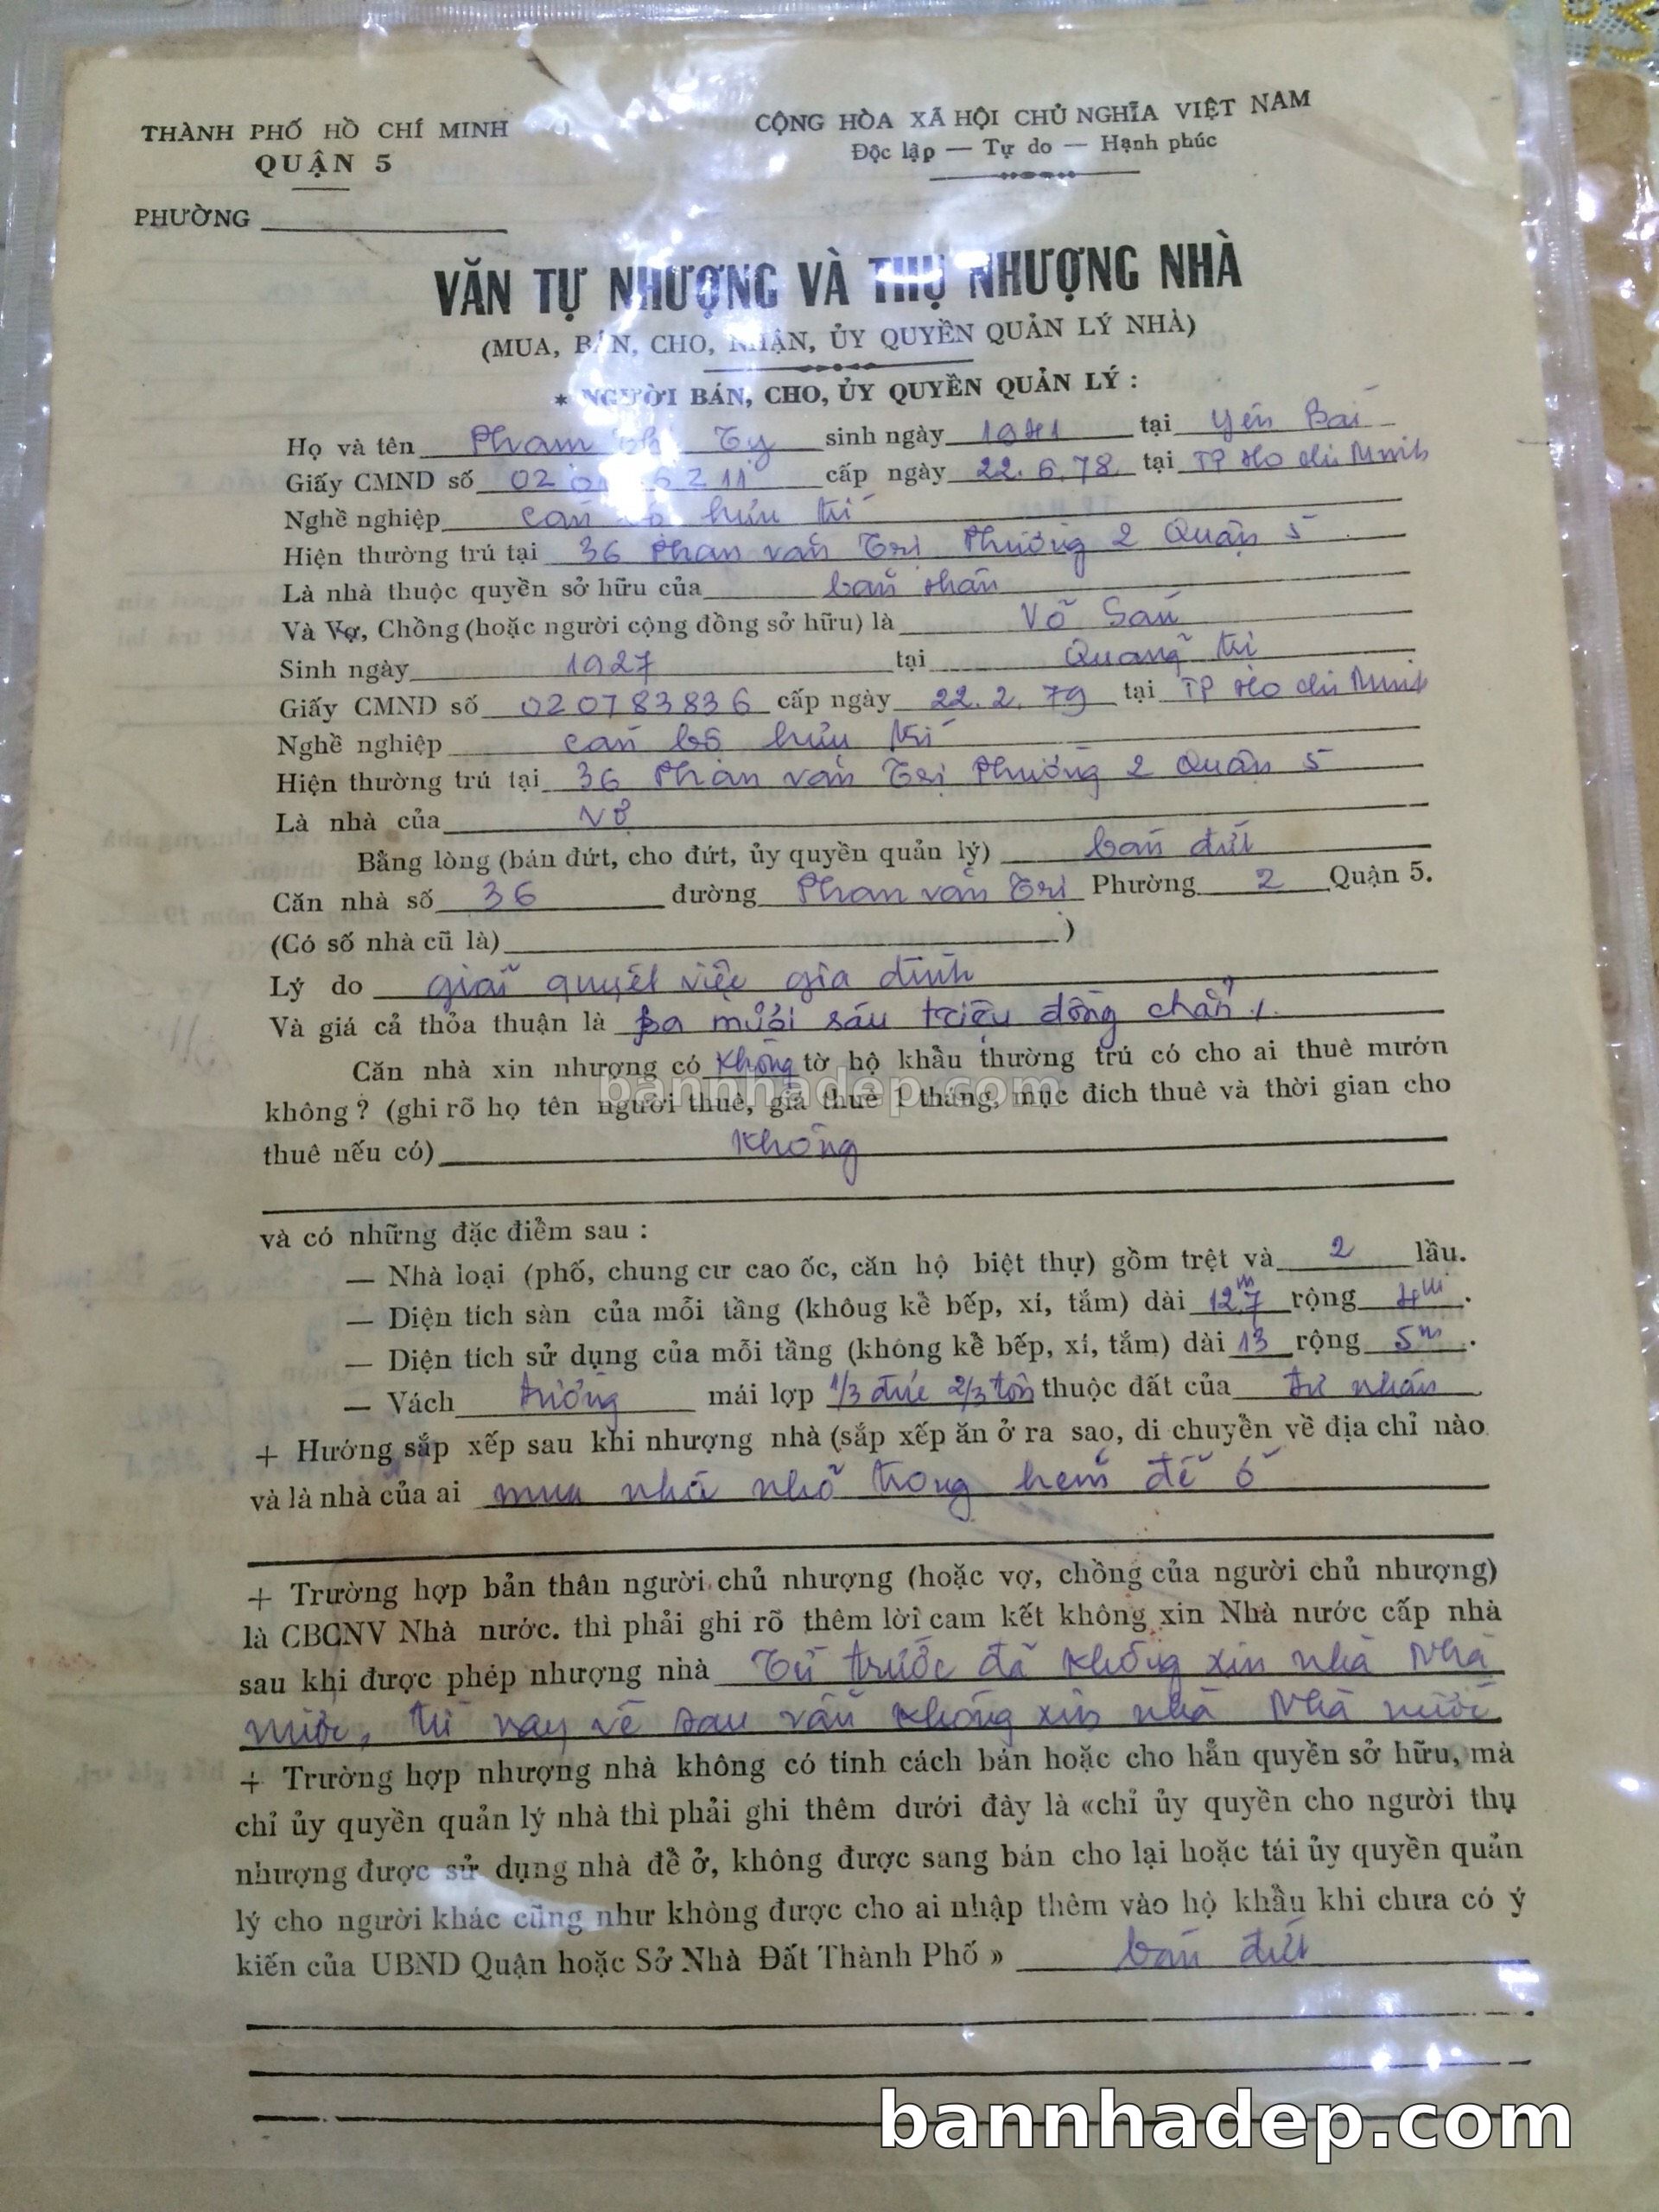 THÀNH PHỐ HỒ CHÍ MINH
QUẬN 5
PHƯỜNG
CỘNG HÒA XÃ HỘI CHỦ NGHĨA VIỆT NAM
Độc lập — Tự do — Hạnh phúc
VĂN TỰ NHƯỢNG VÀ THỤ NHƯỢNG NHÀ
(MUA, BÁN, CHO, NHẬN, ỦY QUYỀN QUẢN LÝ NHÀ)
* NGƯỜI BÁN, CHO, ỦY QUYỀN QUẢN LÝ :
Họ và tên Phạm Ty sinh ngày 1941 tại Yên Bái
Giấy CMND số cấp ngày 22.6.78 tại TP Hồ Chí Minh
Nghề nghiệp cán bộ hưu trí
Hiện thường trú tại 36 Phan văn Trị Phường 2 Quận 5
Là nhà thuộc quyền sở hữu của bản thân
Và Vợ, Chồng (hoặc người cộng đồng sở hữu) là Võ Sáu
Sinh ngày 1927 tại Quảng trị
Giấy CMND số 020783836 cấp ngày 22.2.79 tại TP Hồ Chí Minh
Nghề nghiệp cán bộ hưu trí
Hiện thường trú tại 36 Phan văn Trị Phường 2 Quận 5
Là nhà của vợ
Bằng lòng (bán đứt, cho đứt, ủy quyền quản lý) bán đứt
Căn nhà số 36 đường Phan văn Trị Phường 2 Quận 5.
(Có số nhà cũ là) )
Lý do giải quyết việc gia đình
Và giá cả thỏa thuận là ba mươi sáu triệu đồng chẵn
Căn nhà xin nhượng có không tờ hộ khẩu thường trú có cho ai thuê mướn
không ? (ghi rõ họ tên người thuê, giá thuê 1 tháng, mục đich thuê và thời gian cho
thuê nếu có) không
và có những đặc điểm sau :
— Nhà loại (phố, chung cư cao ốc, căn hộ biệt thự) gồm trệt và 2 lầu.
— Diện tích sàn của mỗi tầng (khôug kể bếp, xí, tắm) dài 12m7 rộng 4m.
— Diện tích sử dụng của mỗi tầng (không kể bếp, xí, tắm) dài 13 rộng 5m.
— Vách tường mái lợp 1/3 đúc 2/3 tôn thuộc đất của tư nhân
+ Hướng sắp xếp sau khi nhượng nhà (sắp xếp ăn ở ra sao, di chuyển về địa chỉ nào
và là nhà của ai mua nhà nhỏ trong hẻm để ở
+ Trường hợp bản thân người chủ nhượng (hoặc vợ, chồng của người chủ nhượng)
là CBCNV Nhà nước. thì phải ghi rõ thêm lời cam kết không xin Nhà nước cấp nhà
sau khi được phép nhượng nhà Từ trước đã không xin nhà Nhà
nước, từ nay về sau vẫn không xin nhà Nhà nước
+ Trường hợp nhượng nhà không có tính cách bán hoặc cho hẳn quyền sở hữu, mà
chỉ ủy quyền quản lý nhà thì phải ghi thêm dưới đây là «chỉ ủy quyền cho người thụ
nhượng được sử dụng nhà để ở, không được sang bán cho lại hoặc tái ủy quyền quản
lý cho người khác cũng như không được cho ai nhập thêm vào hộ khẩu khi chưa có ý
kiến của UBND Quận hoặc Sở Nhà Đất Thành Phố » bán đứt
bannhadep.com
bannhadep.com